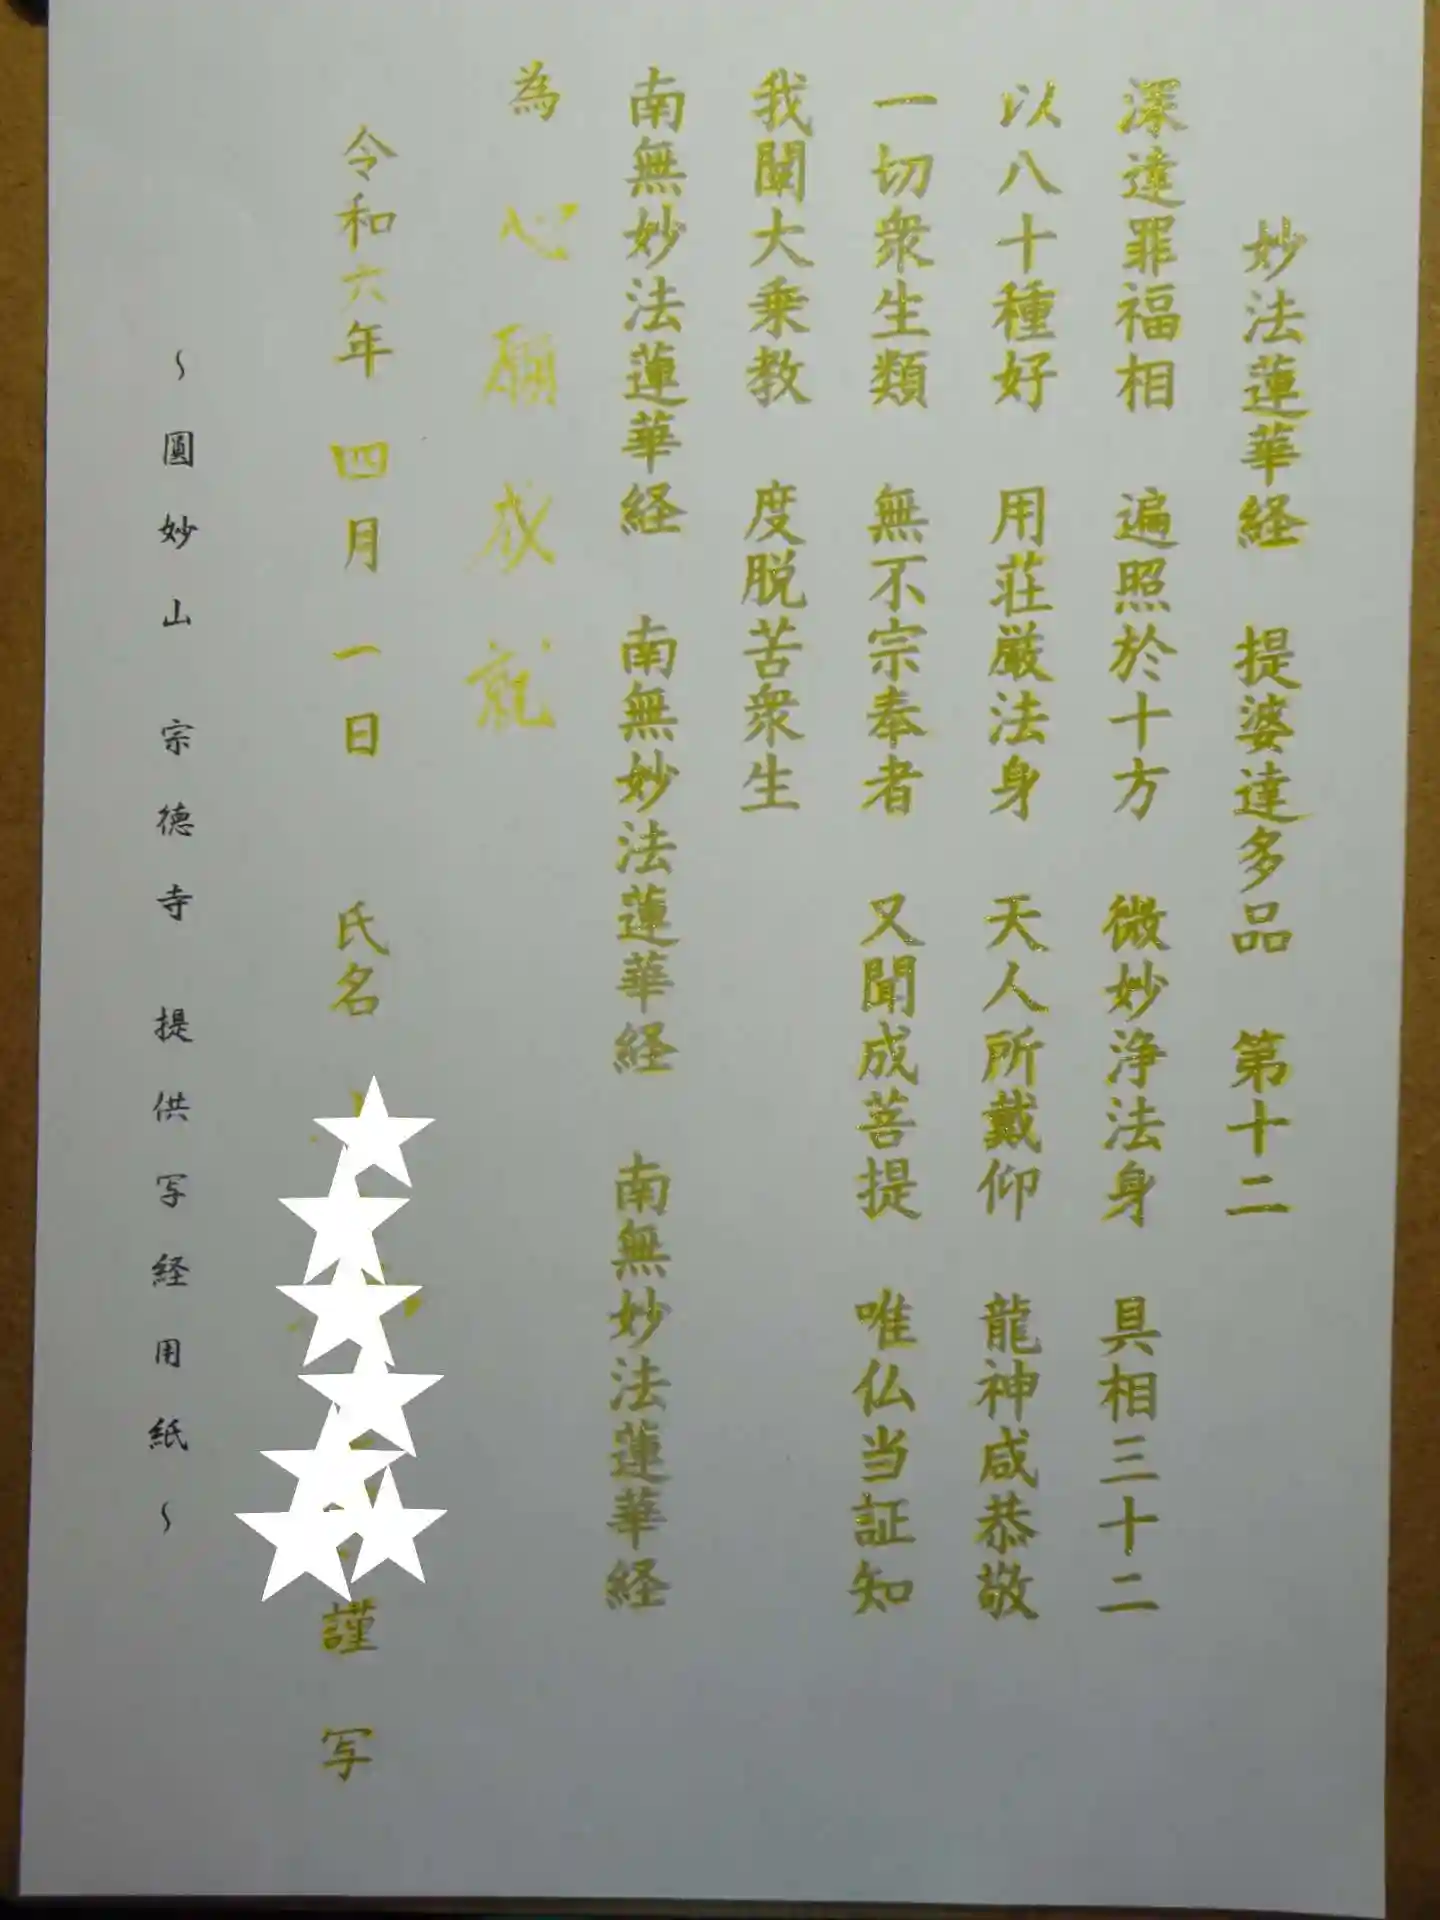 妙法蓮華経　提婆達多品　第十二
深達罪福相　遍照於十方　微妙浄法身　具相三十二
以八十種好　用荘厳法身　天人所戴仰　龍神咸恭敬
一切衆生類　無不宗奉者　又聞成菩提　唯仏当証知
我闡大乗教　度脱苦衆生
南無妙法蓮華経　南無妙法蓮華経　南無妙法蓮華経
為　心願成就
令和六年　四月　一日　氏名　謹写
～圓妙山　宗徳寺　提供写経用紙～